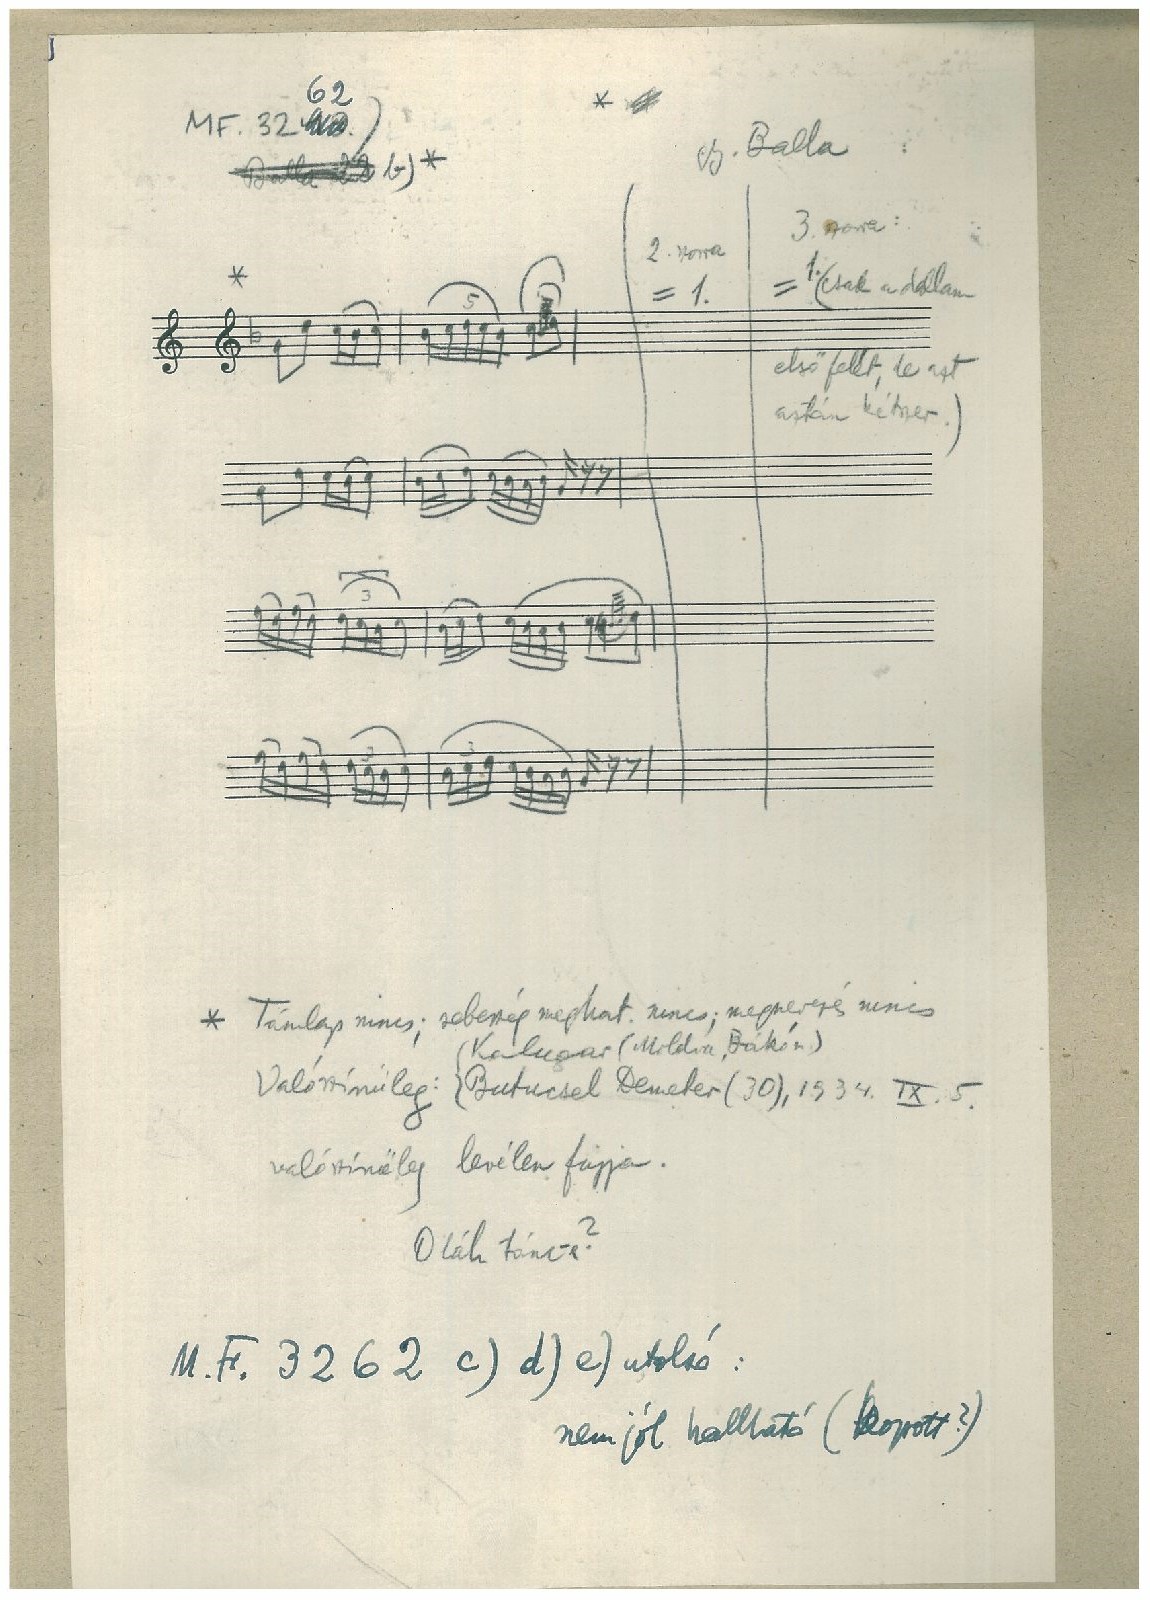 62
MF. 32
Balla 22 b) *
*
gy. Balla
2. vorra
= 1.
3. vorra:
= 1. (csak a dallam
első felét, de azt
aztán kétszer.)
*
5
3
3
3
* Támlap nincs; sebesség meghat. nincs; megnevezés nincs
Kalugar (Moldva, Bákó m.)
Valószínűleg: Butucsel Demeter (30), 1934. IX. 5.
valószínűleg levélen fújja.
Oláh tánc-e?
M.F. 3262 c) d) e) utolsó:
nem jól hallható (kopott?)